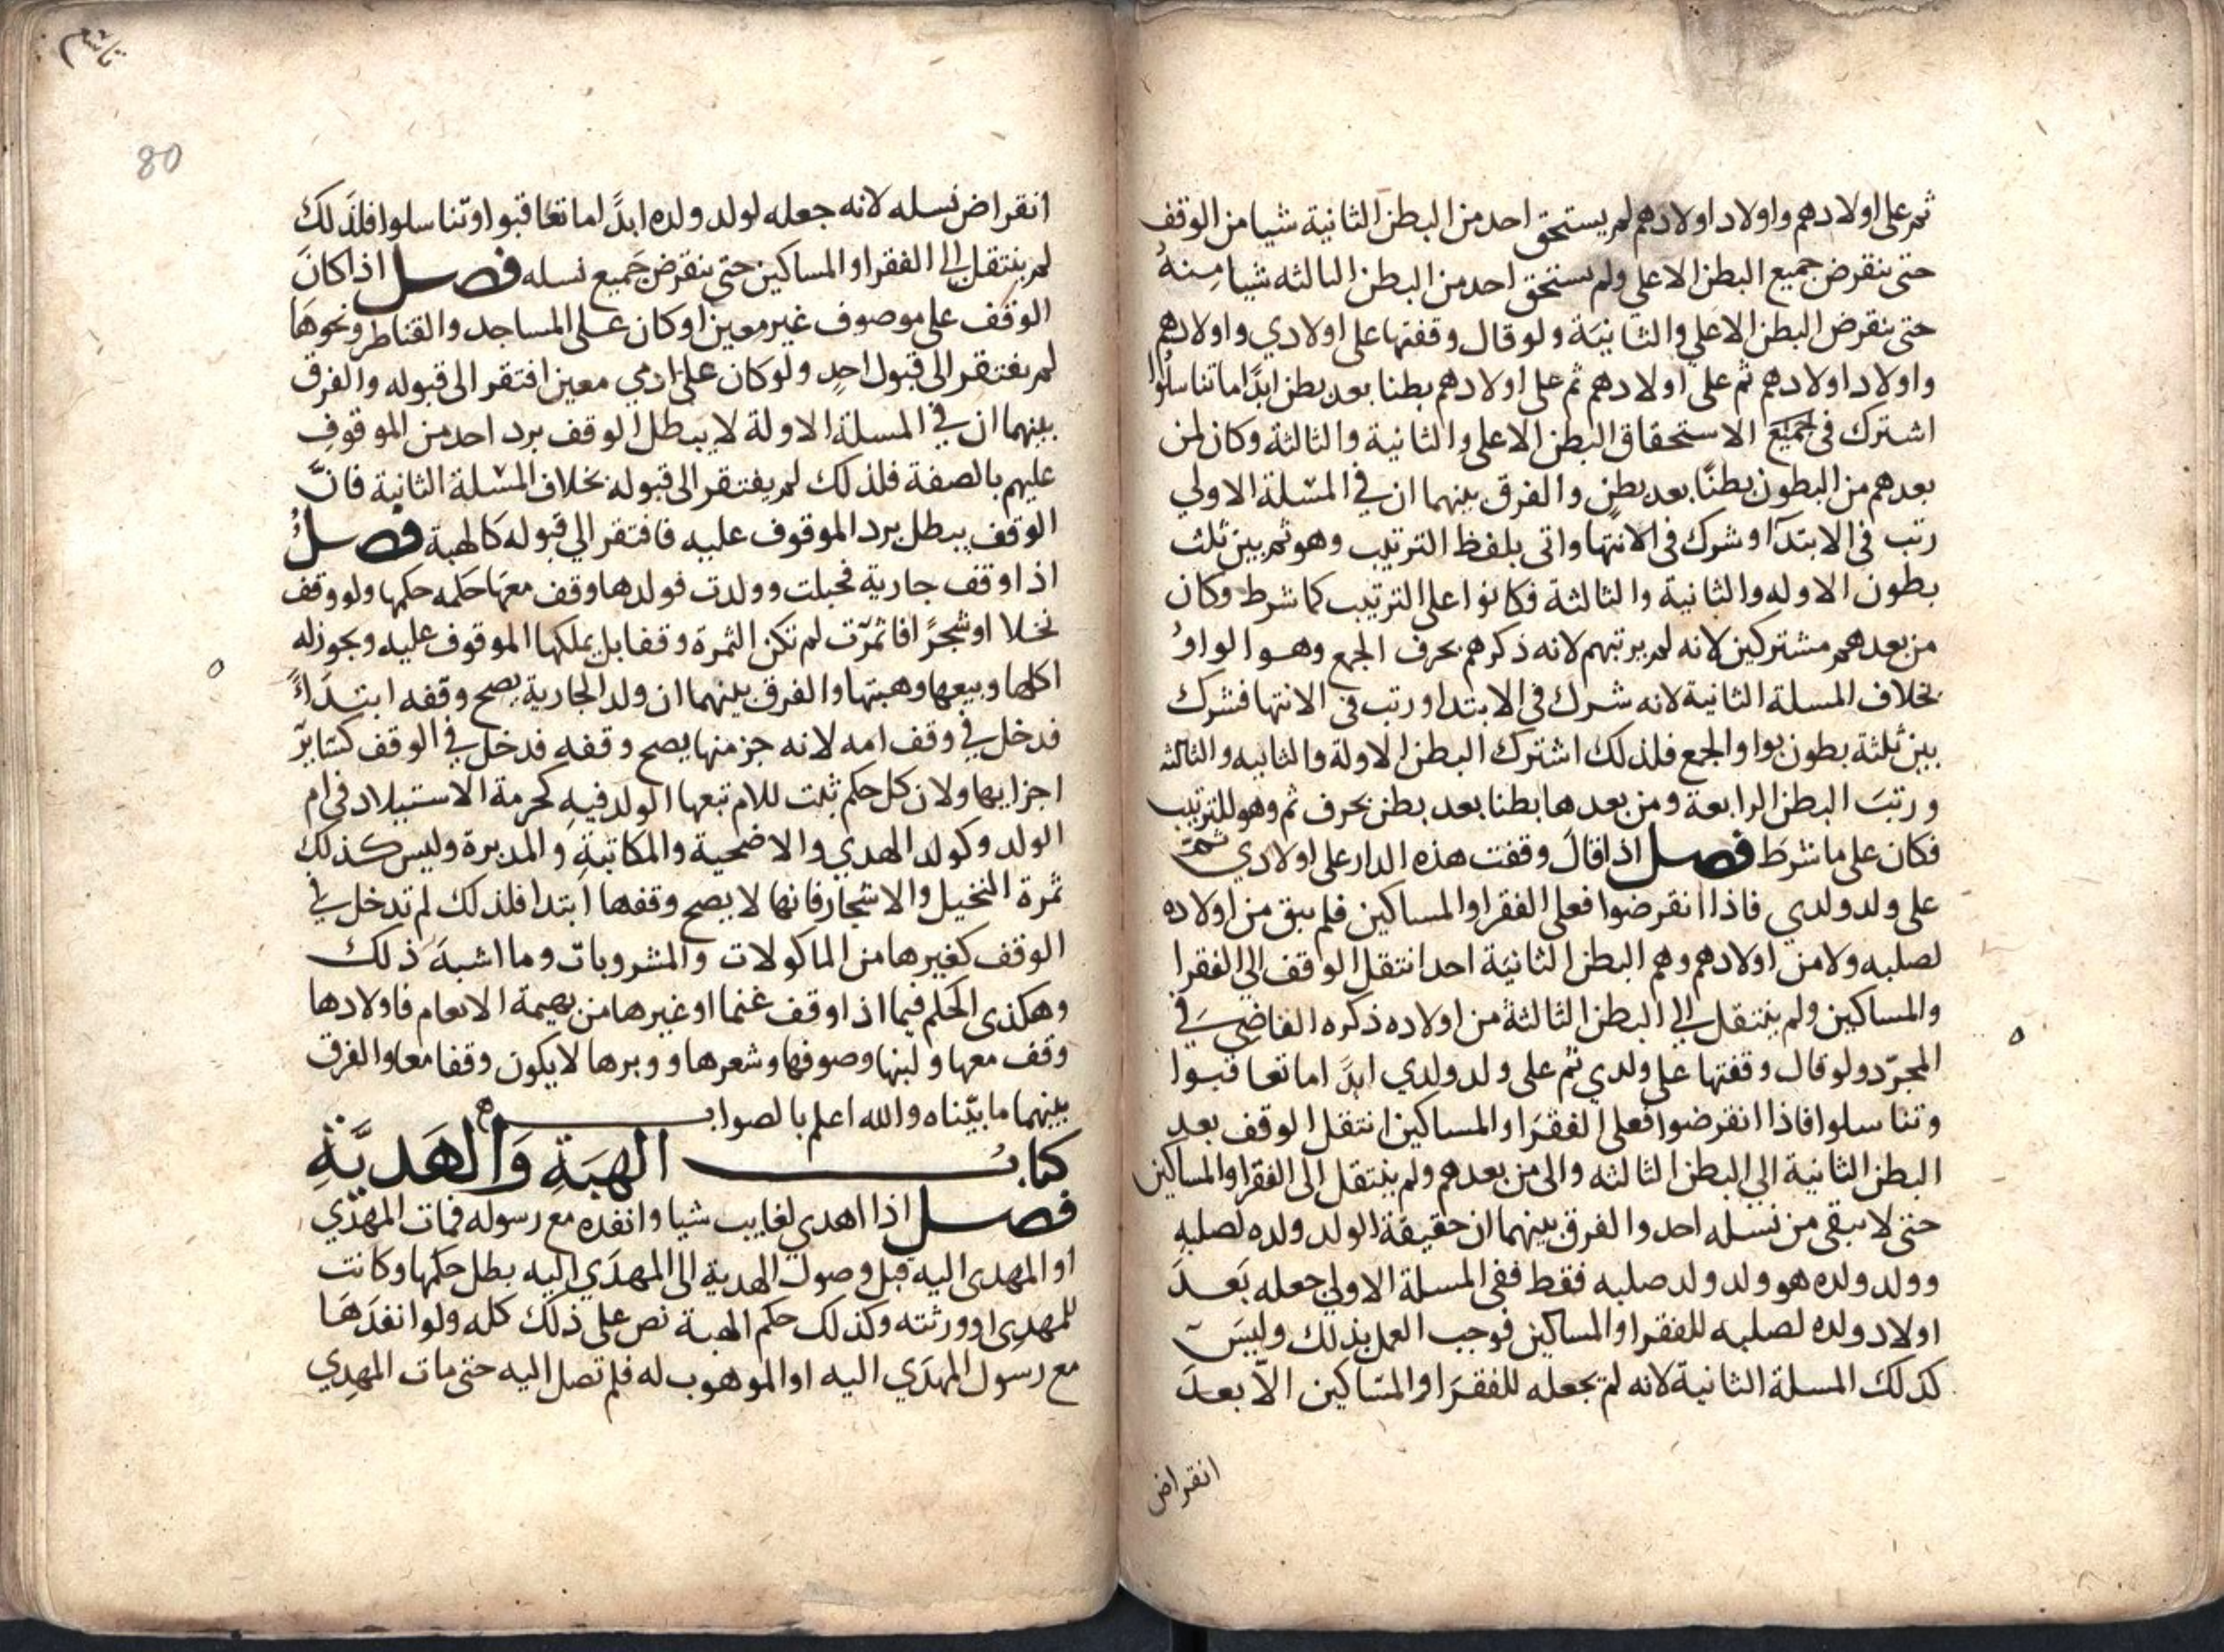 ثم على اولادهم واولاد اولادهم لم يستحق احد من البطن الثانية شيا من الوقف
حتى ينقرض جميع البطن الاعلى ولم يستحق احد من البطن الثالثه شيا مِنهُ
حتى ينقرض البطن الاعلى والثانيَة ولو قال وقفتها على اولادي واولادهم
واولاد اولادهم ثم على اولادهم ثم على اولادهم بطنا بعد بطن ابدًا ما تناسلُوا
اشترك في جَميعَ الاستحقاق البطن الاعلى والثانية والثالثة وكان لمن
بعدهم من البطون بطنًا بعد بطنٍ والفرق بينهما ان في المسْلة الاولي
رتب في الابتدآ وشرك في الانتها واتى بلفظ الترتيب وهو ثم بين ثلث
بطون الاوله والثانية والثالثة فكانوا على الترتيب كما شرط وكان
من بعدهم مشتركين لانه لم يرتبهم لانه ذكرهم بحرف الجمع وهو الواوُ
بخلاف المسلة الثانية لانه شرك في الابتدا ورتب في الانتها فشرك
بين ثلثة بطون بواو الجمع فلذلك اشترك البطن الاولة والثانيه والثالثه
ورتبَ البطن الرابعة ومن بعدها بطنا بعد بطن بحرف ثم وهو للترتيب
فكان على ما شرط فصل اذا قالَ وقفت هذه الدار على اولادي ثمّ
على ولد ولدي فاذا انقرضوا فعلى الفقرا والمساكين فلم يبق من اولاده
لصلبه ولا من اولادهم وهم البطن الثانيَة احد انتقل الوقف الي الفقرا
والمساكين ولم ينتقل الي البطن الثالثة من اولاده ذكره القاضِي في
المجرّد ولو قال وقفتها على ولدي ثم على ولد ولدي ابدًا ما تعاقبوا
وتناسلوا فاذا انقرضوا فعلى الفقرَا والمساكين انتقل الوقف بعد
البطن الثانية الي البطن الثالثه والى من بعدهم ولم ينتقل الى الفقرا والمساكين
حتى لا يبقى من نسله احد والفرق بينهما ان حقيقة الولد ولده لصلبه
وولد ولده هو ولد ولد صلبه فقط ففي المسلة الاولي جعله بَعدَ
اولاد ولده لصلبه للفقرا والمساكين فوجب العمل بذلك وليسَ
كذلك المسلة الثانية لانه لم يجعله للفقرَا والمسَاكين الاّ بعدَ
انقراض
80
انقراض نسله لانه جعله لولد ولده ابدًا ما تعاقبوا وتناسلوا فلذلك
لم ينتقل الي الفقرا والمساكين حتى ينقرض جَميع نسله فصل اذا كانَ
الوقف على موصوف غير معين او كان على المساجد والقناطر ونحوهَا
لم يفتقر الى قبول احدٍ ولو كان على ادمي معين افتقر الى قبوله والفرق
بينهما ان في المسلة الاولة لا يبطل الوقف برد احد من الموقوف
عليهم بالصفة فلذلك لم يفتقر الى قبوله بخلاف المسْلة الثانية فانّ
الوقف يبطل برد الموقوف عليه فافتقر الي قبوله كالهبة فصلُ
اذا وقف جارية فحبلت وولدت فولدها وقف معَها حكمه حكمها ولو وقف
نخلا او شجرًا فاثمرّت لم تكن الثمرة وقفا بل يملكها الموقوف عليه ويجوز له
اكلها وبيعها وهبتها والفرق بينهما ان ولد الجارية يصح وقفه ابتدَاءً
فدخل في وقف امه لانه جز منها يصح وقفه فدخل في الوقف كسَاير
اجزايها ولان كل حكم ثبت للام تبعها الولد فيهِ كحرمة الاستيلاد في ام
الولد وكولد الهدي والاضحية والمكاتبةِ والمدبرة وليس كذلك
ثمرة النخيل والاشجار فانها لا يصح وقفها ابتدا فلذلك لم تدخل في
الوقف كغيرها من الماكولات والمشروبات وما اشبهَ ذلك
وهكذى الحكم فيما اذا وقف غنما او غيرها من بهيمة الانعام فاولادها
وقف معها ولبنها وصوفها وشعرها ووبرها لا يكون وقفا معها والفرق
بينهما ما بيّناه والله اعلم بالصواب ه
كتابُ الهبَةِ وَالهَديَّةِ
فصل اذا اهدي لغايب شيا وانفده مع رسوله فمات المهدي
او المهدى اليه قبل وصول الهدية الى المهدَي اليه بطل حكمها وكانت
للمهدِي او ورثته وكذلك حكم الهبة نص على ذلك كله ولو انفدَهَا
مع رسول المهدَي اليه او الموهوب له فلم تصل اليه حتى مات المهدِي